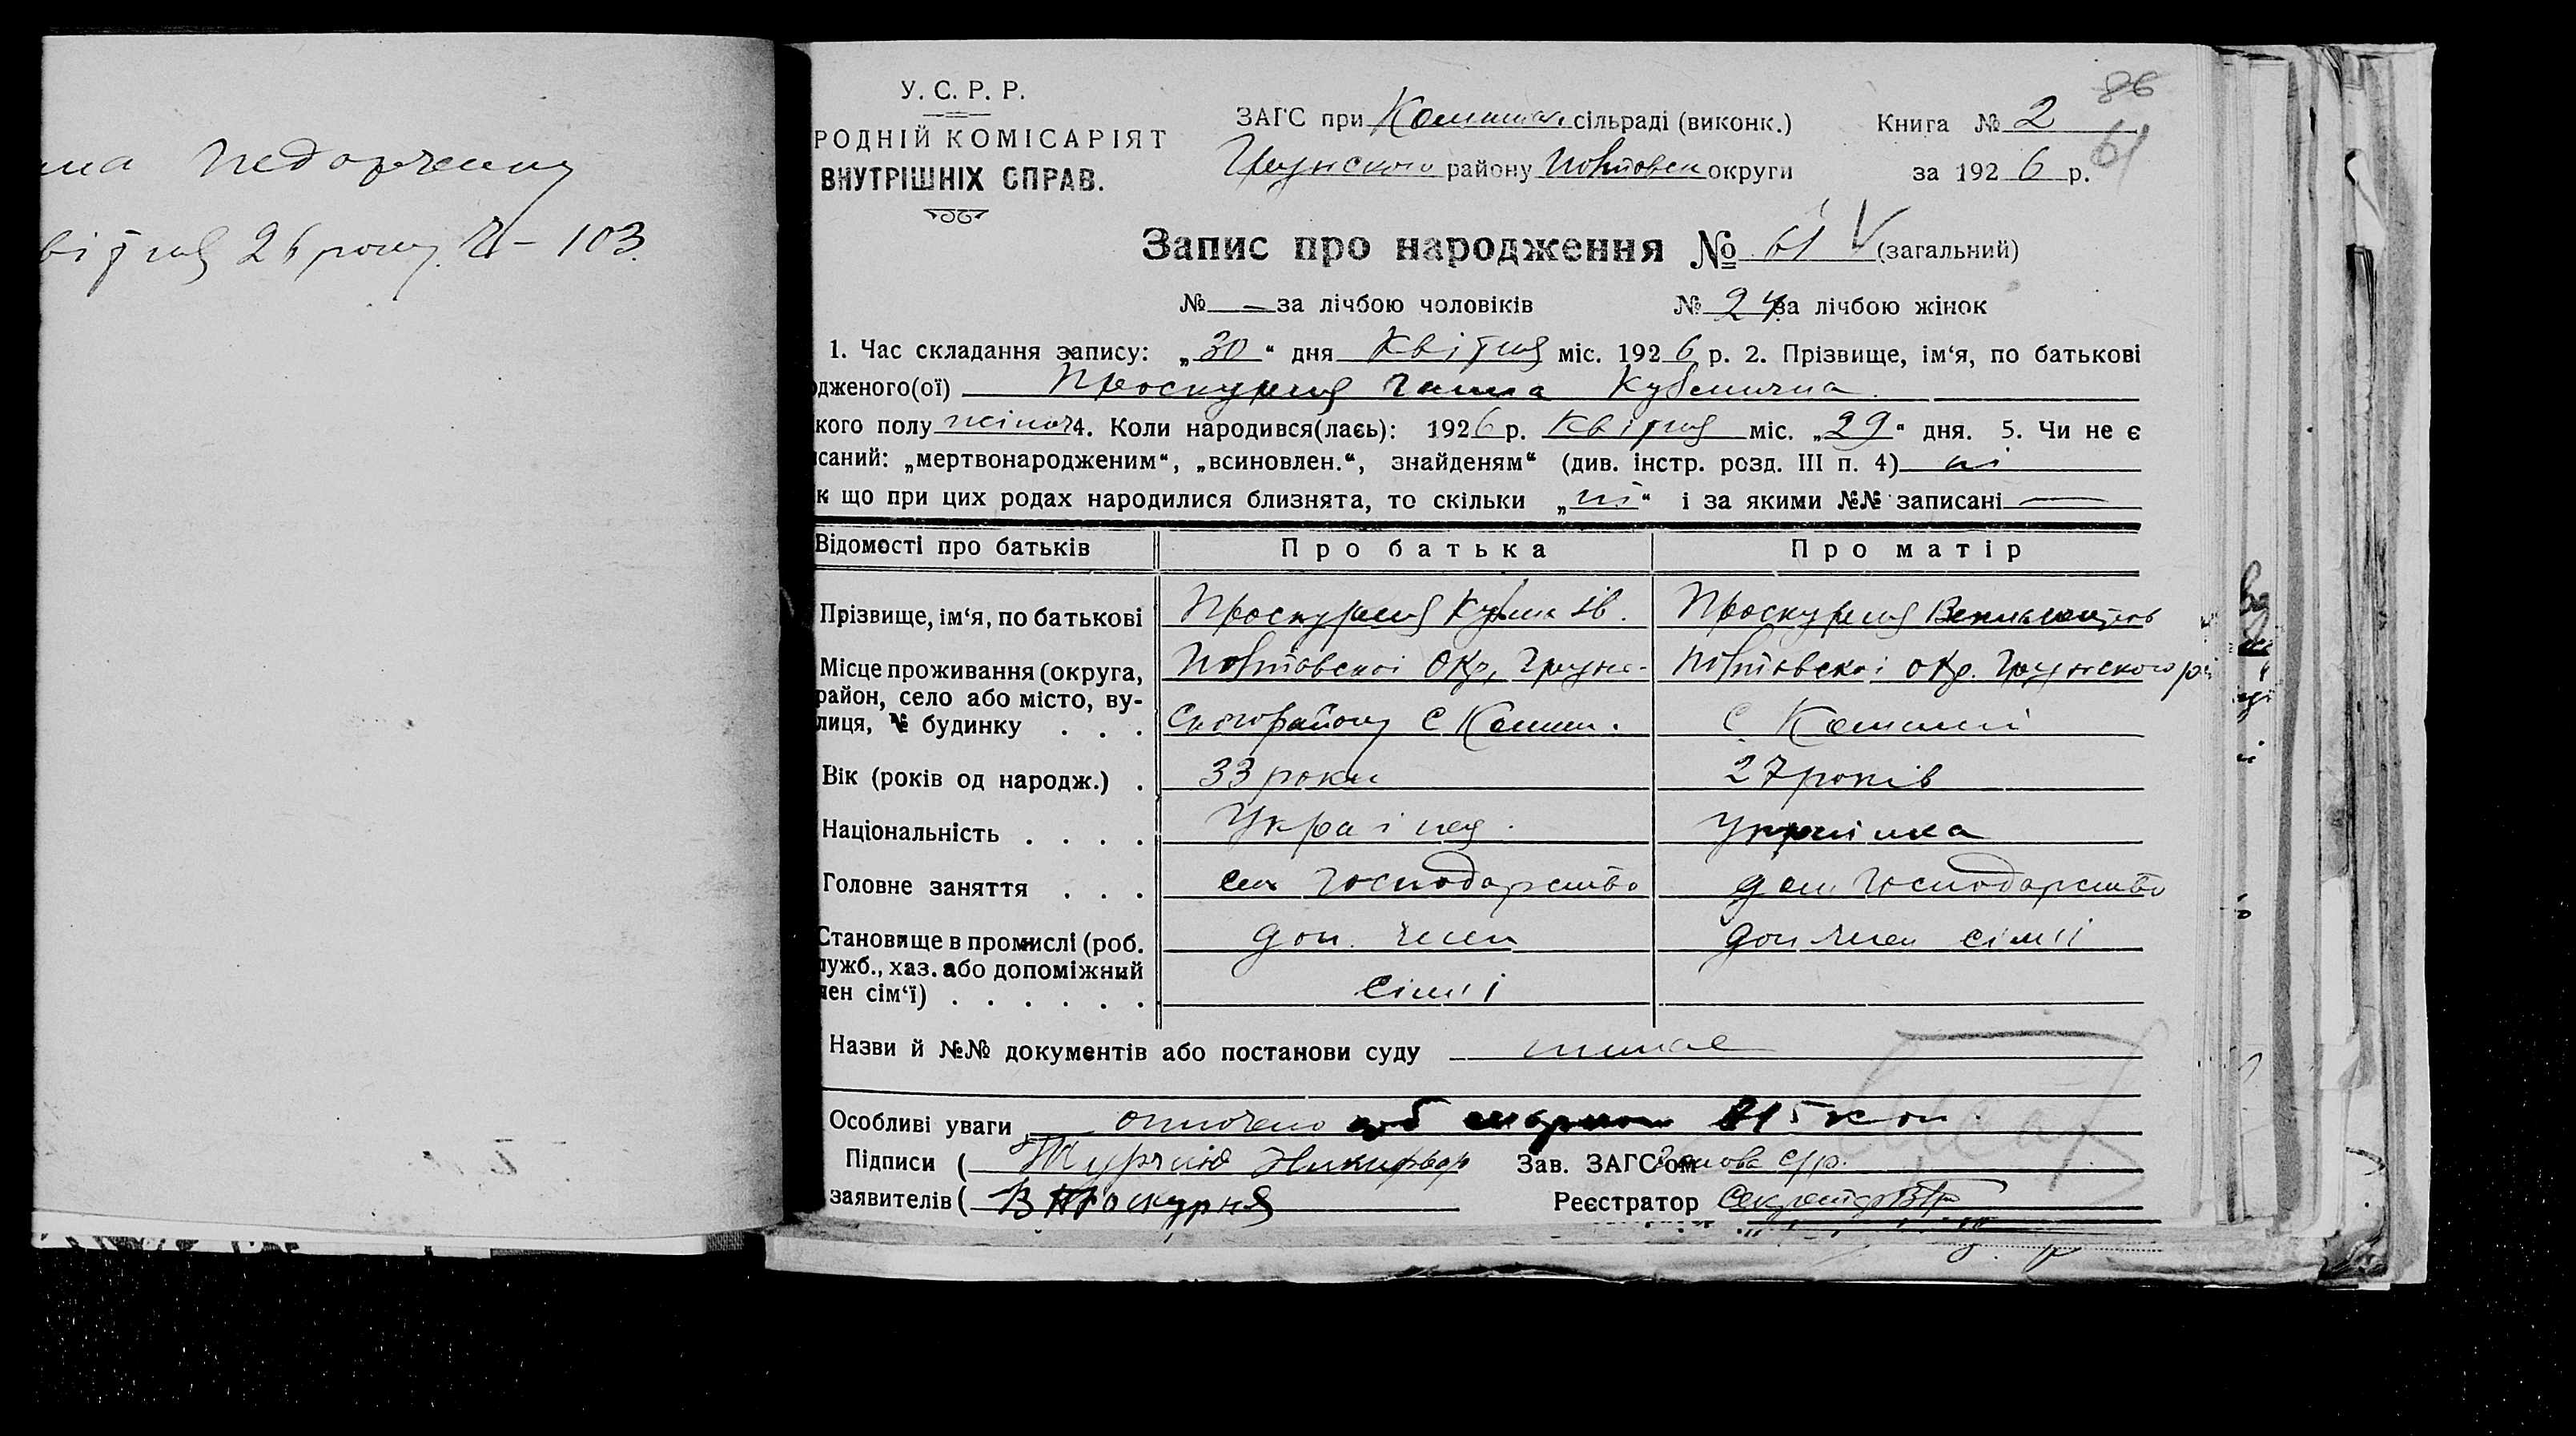 Недорчену
26 року Ч – 103.
86
У. С. Р. Р.
РОДНІЙ КОМІСАРІЯТ
ВНУТРІШНІХ СПРАВ.
ЗАГС при сільраді (виконк.) Книга № 2
61
району округи за 1926 р.
Запис про народження № 61 (загальний)
№ — за лічбою чоловіків № 24 за лічбою жінок
1. Час складання запису: „30“ дня Квітня міс. 1926 р. 2. Прізвище, ім‘я, по батькові
дженого(ої) Проскурня Ганна Кубмична
кого полу жіноч 4. Коли народився(лась): 1926 р. Квітня міс. „29“ дня. 5. Чи не є
саний: „мертвонародженим“, „всиновлен.“, знайденям“ (див. інстр. розд. III п. 4) ні
к що при цих родах народилися близнята, то скільки „ні“ і за якими №№ записані —
Відомості про батьків Про батька Про матір
Прізвище, ім‘я, по батькові Проскурня Ів. Проскурня
Місце проживання (округа, Полтавської Окр, Груне- Полтавскої окр. Грунского р
район, село або місто, ву-
лиця, № будинку . . . ского району С Комиш. С Комиші
Вік (років од народж.) . 33 роки 27 років
Національність . . . . Українец. Українка
Головне заняття . . . сел господарство дом господарство
Становище в промислі (роб. доп. член доп член сімії
лужб., хаз. або допоміжний
лен сім‘ї) . . . . . . сімії
Назви й №№ документів або постанови суду немає
Особливі уваги оплочено 15 коп.
Підписи ( Никифор Зав. ЗАГС‘ом Голова с/р.
заявителів ( В Проскурня Реєстратор Секретар